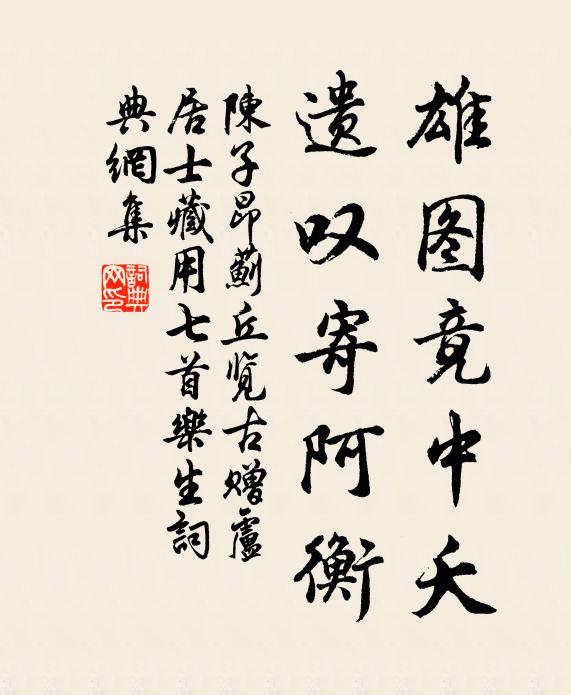 雄图竟中夭
遗叹寄阿衡
陳子昂薊丘览古赠盧
居士藏用七首樂生詞
典網集
詞典网印